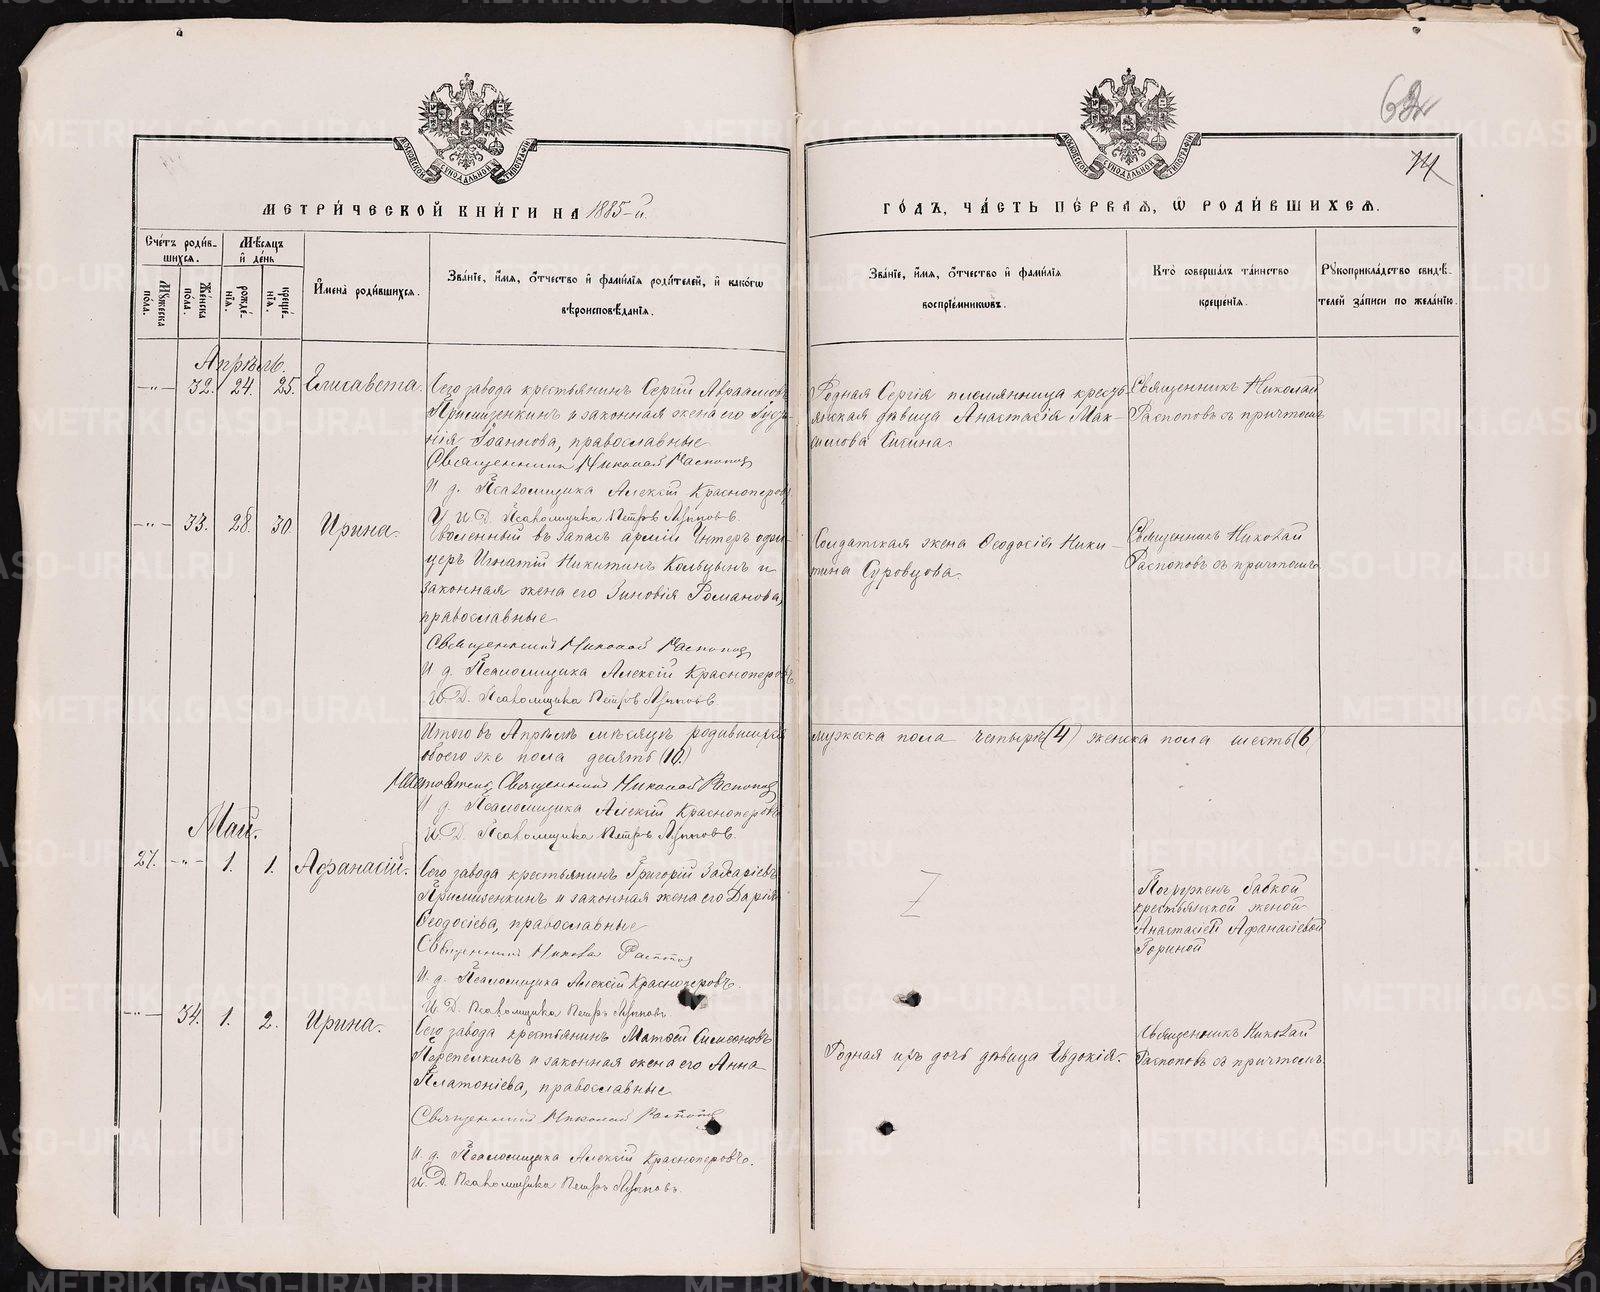 62
74
МЕТРИ́ЧЕСКОЙ КНИ́ГИ НА 1885-й.
ГО́ДЪ, ЧА́СТЬ ПЕ́РВАЯ, Ѡ РОДИ́ВШИХСЯ.
Сче́тъ роди́в-
шихся.
Мѣ́сяцъ
и де́нь
Мꙋжеска
пола.
Же́нска
пола.
рожде́-
нія.
креще́-
нія.
И҆мена̀ роди́вшихся.
Зва́ніе, и҆́мя, ѻ҆́тчество и҆ фами́лія роди́телей, и҆ како́гѡ
вѣроисповѣ́данія.
Зва́ніе, и҆́мя, ѻ҆́тчество и҆ фами́лія
воспріе́мниковъ.
Кто̀ соверша́лъ та́инство
креще́нія.
Рꙋкоприкла́дство свидѣ́-
телей за́писи по жела́нію.
Апрѣль.
-"- 32. 24. 25. Елисавета.
Сего завода крестьянинъ Сергій Авраамовъ
Примизенкинъ и законная жена его
Іоаннова, православные
Священникъ Николай Распопов
И. д. Псаломщика Алексій Красноперовъ
И. Д. Псаломщика Петръ
Родная Сергія племянница кресть-
янская дѣвица Анастасія Мак-
симова
Священникъ Николай
Распоповъ съ причтомъ
-"- 33. 28. 30. Ирина.
Уволенный въ запасъ арміи Унтеръ офи-
церъ Игнатій Никитинъ Кольцынъ и
законная жена его Зиновія Романова,
православные
Священникъ Николай Распопов
И. д. Псаломщика Алексій Красноперовъ.
И. Д. Псаломщика Петръ
Солдатская жена Ѳеодосія Ники-
тина Суровцова.
Священникъ Николай
Распоповъ съ причтомъ
Итого въ Апрѣлѣ мѣсяцѣ родившихся
мужеска пола четыре (4) женска пола шесть (6
обоего же пола десять (10.)
Священникъ Николай Распопов
И. д. Псаломщика Алексій Красноперовъ
И. Д. Псаломщика Петръ
Май.
27. -"- 1. 1. Аѳанасій.
Сего завода крестьянинъ Григорій Захаріевъ
Примизенкинъ и законная жена его Дарія
Ѳеодосіева, православные
Священникъ Николай Распопов
И. д. Псаломщика Алексій Красноперовъ.
И. Д. Псаломщика Петръ
Z
Погруженъ бабкой
крестьянской женой
Анастасіей Аѳанасіевой
Гориной
-"- 34. 1. 2. Ирина.
Сего завода крестьянинъ Матѳей Симеоновъ
Перепелкинъ и законная жена его Анна
Платоніева, православные
Священникъ Николай Распопов
И. д. Псаломщика Алексій Красноперовъ.
И. Д. Псаломщика Петръ
Родная ихъ дочь дѣвица Евдокія.
Священникъ Николай
Распоповъ съ причтомъ
METRIKI.GASO-URAL.RU